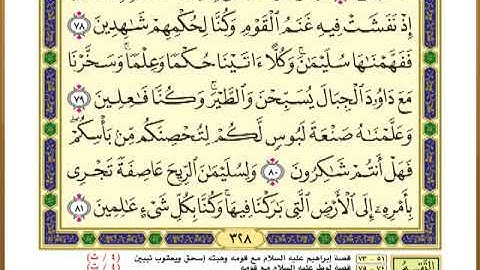 إِذْ نَفَشَتْ فِيهِ غَنَمُ ٱلْقَوْمِ وَكُنَّا لِحُكْمِهِمْ شَٰهِدِينَ ٧٨
فَفَهَّمْنَٰهَا سُلَيْمَٰنَۚ وَكُلًّا ءَاتَيْنَا حُكْمًا وَعِلْمًاۚ وَسَخَّرْنَا
مَعَ دَاوُۥدَ ٱلْجِبَالَ يُسَبِّحْنَ وَٱلطَّيْرَۚ وَكُنَّا فَٰعِلِينَ ٧٩
وَعَلَّمْنَٰهُ صَنْعَةَ لَبُوسٍ لَّكُمْ لِتُحْصِنَكُم مِّنۢ بَأْسِكُمْۖ
فَهَلْ أَنتُمْ شَٰكِرُونَ ٨٠ وَلِسُلَيْمَٰنَ ٱلرِّيحَ عَاصِفَةً تَجْرِى
بِأَمْرِهِۦٓ إِلَى ٱلْأَرْضِ ٱلَّتِى بَٰرَكْنَا فِيهَاۚ وَكُنَّا بِكُلِّ شَىْءٍ عَٰلِمِينَ ٨١
٣٢٨
٥١ - ٧٣ قصة إبراهيم عليه السلام مع قومه وهبته إسحق ويعقوب نبيين (٤ / ت)
٧٤ - ٧٥ قصة لوط عليه السلام مع قومه (٤ / ت)